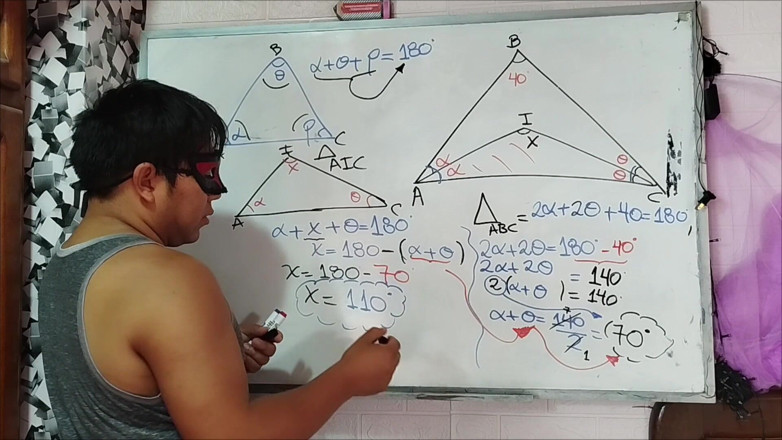 B
θ
α
ρ
C
α+θ+ρ=180°
I
x
α
θ
A
C
△AIC
α+x+θ=180°
x=180-(α+θ)
x=180-70°
x=110°
B
40°
I
x
α
α
θ
θ
A
C
△ABC=2α+2θ+40=180°
2α+2θ=180°-40°
2α+2θ=140°
2(α+θ)=140°
α+θ=140/2=70°
1